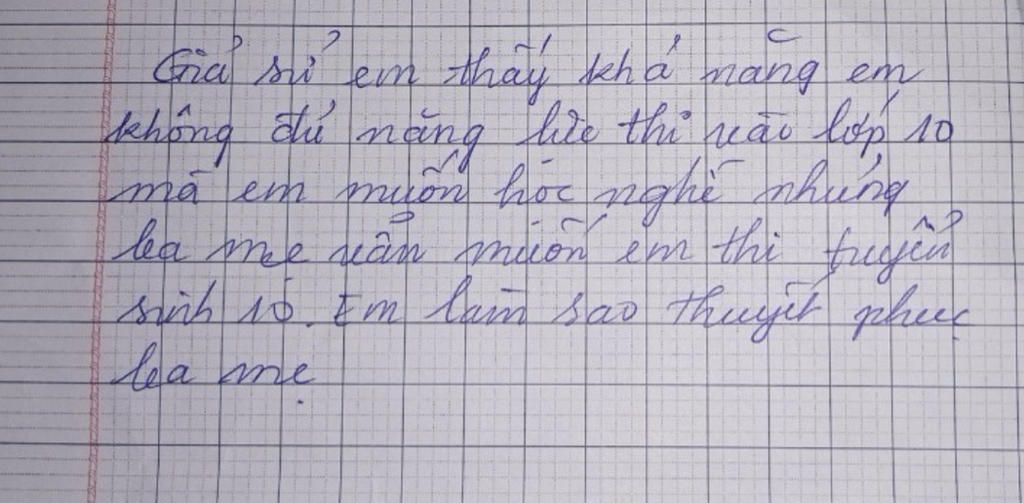 Giả sử em thấy khả năng em
không đủ năng lực thi vào lớp 10
mà em muốn học nghề nhưng
ba mẹ vẫn muốn em thi tuyển
sinh 10. Em làm sao thuyết phục
ba mẹ